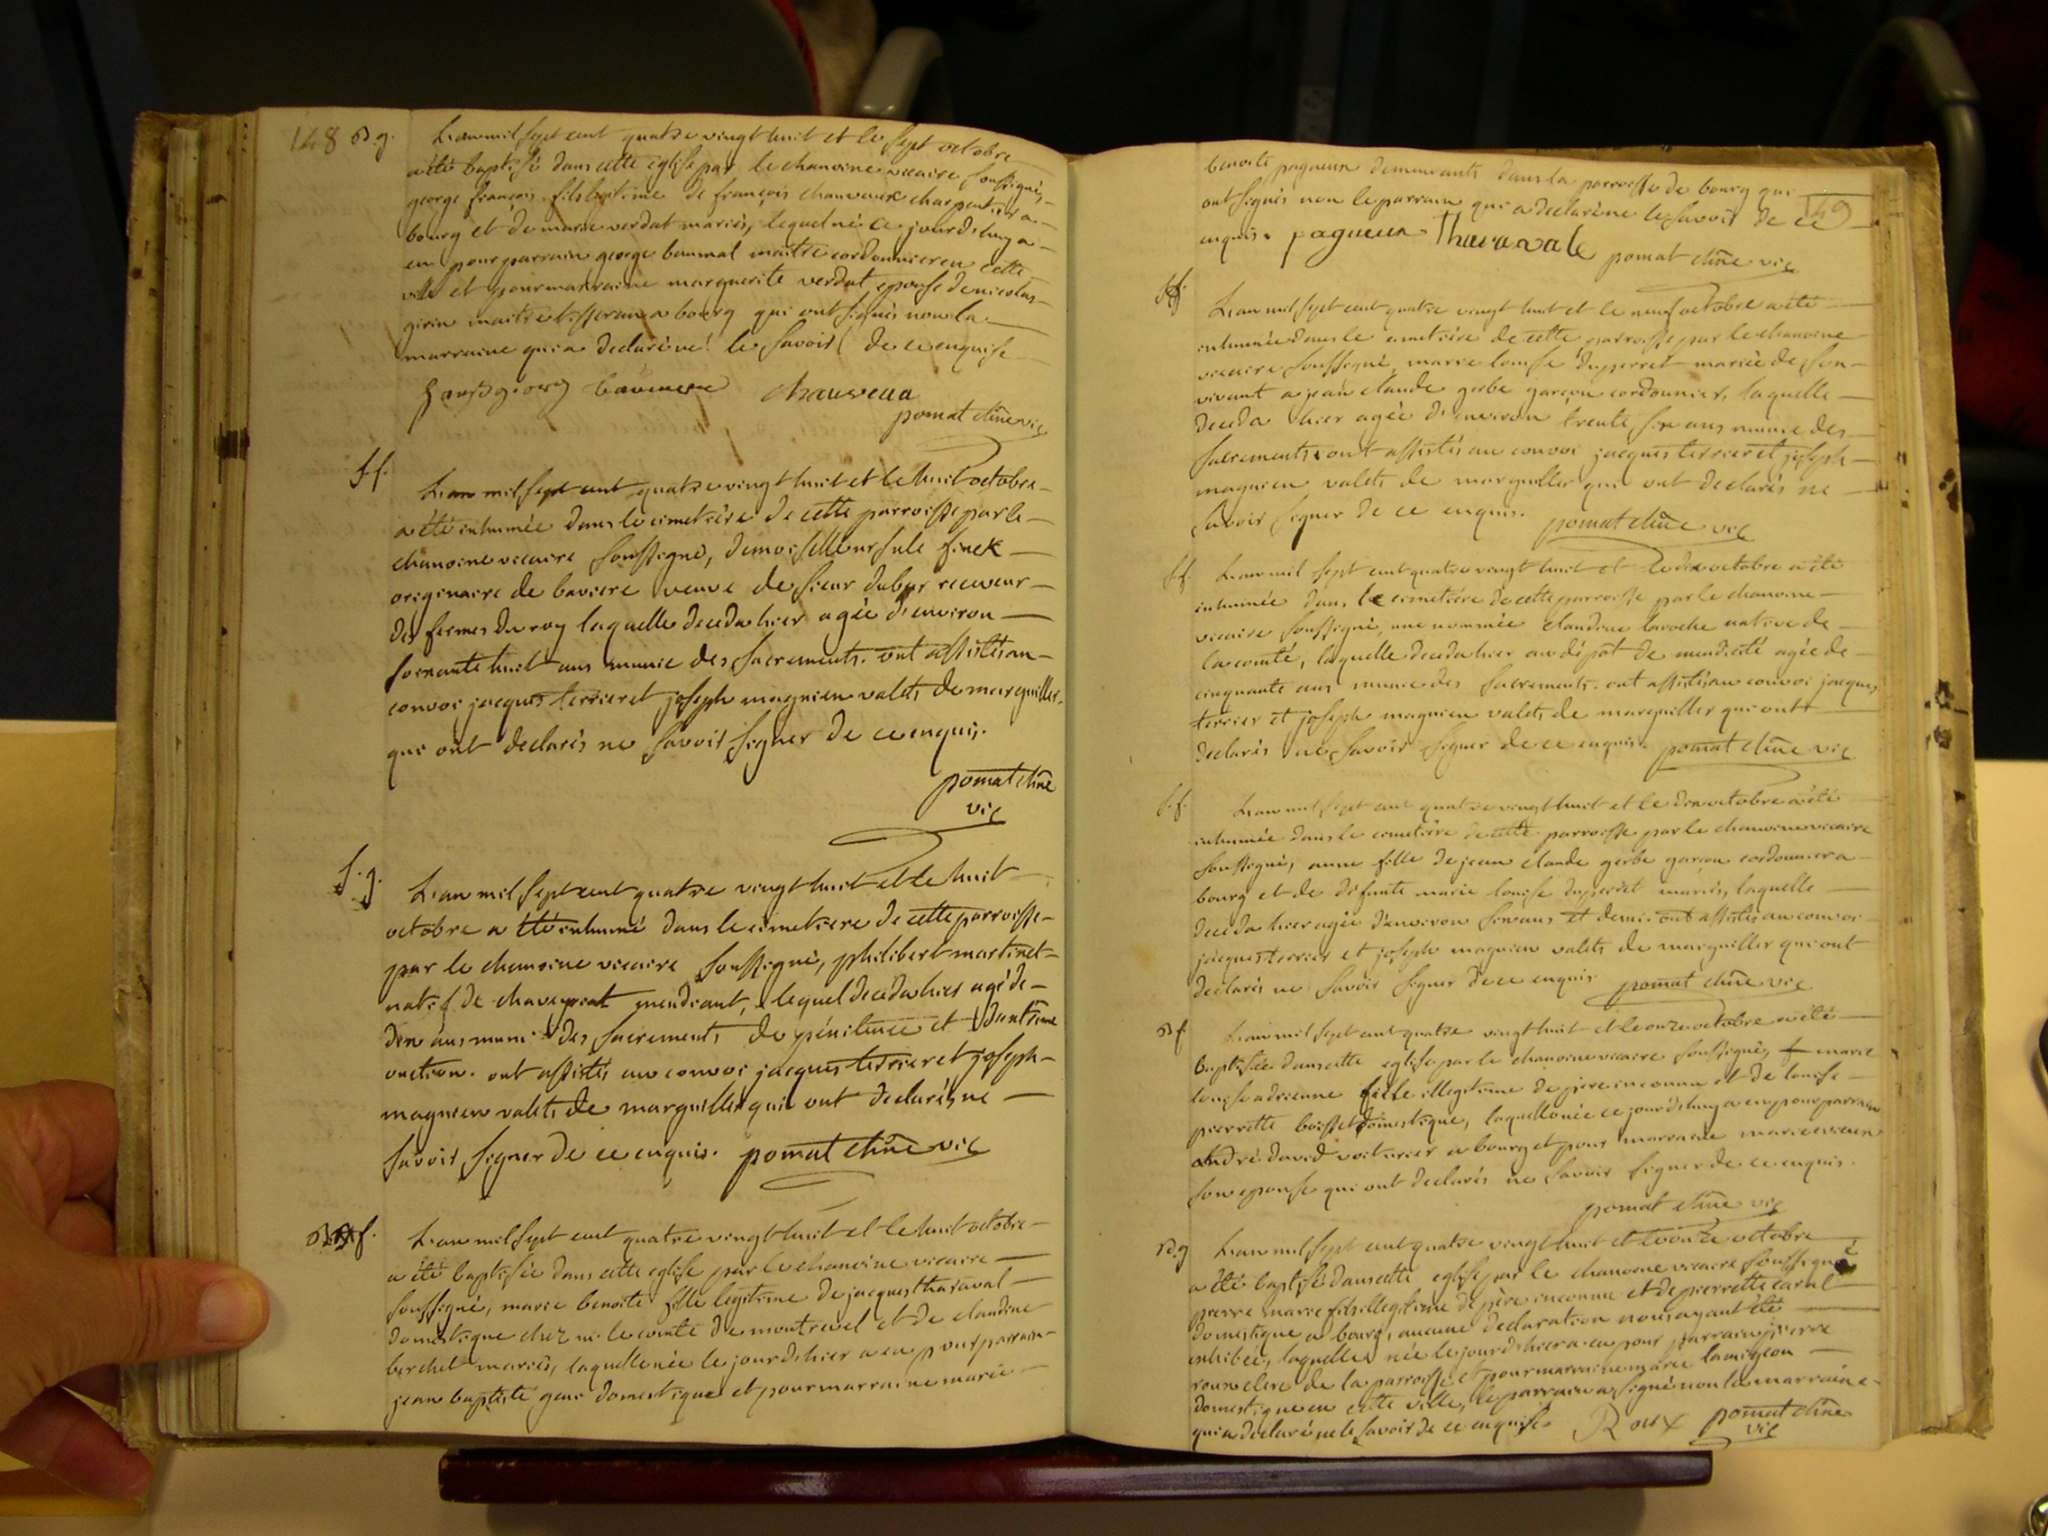 148 B.g. L'an mil sept cent quatre vingt huit et le sept octobre
a été baptisé dans cette eglise par le chanoine vicaire soussigné,
george françois fils legitime de françois chauveux charpentier a
bourg et de marie verdat mariés, lequel né ce jourd'huy a
eu pour parrain george baumal maitre cordonnier en cette
ville et pour marraine marguerite verdat, epouse de nicolas
girin maitre tisseran a bourg qui ont signés non la
marraine qui a declaré ne le savoir de ce enquise
chauveux
pomat chne vic
s.f. L'an mil sept cent quatre vingt huit et le huit octobre
a été inhumée dans le cimetière de cette parroisse par le
chanoine vicaire soussigné, demoiselle ursule finck
originaire de baviere veuve de sieur dubur receveur
des fermes du roy laquelle deceda hier agée d'environ
soixante huit ans munie des sacrements. ont assistés au
convoi jacques terrier et joseph magnien valets de marguiller
qui ont declarés ne savoir signer de ce enquis.
pomat chne
vic
s.g. L'an mil sept cent quatre vingt huit et le huit
octobre a été inhumé dans le cimetiere de cette parroisse
par le chanoine vicaire soussigné, philibert martinet
natif de chaveyriat mendiant, lequel deceda hier agé de
dix ans muni des sacrements de pénitence et d'extrème
onction. ont assistés au convoi jacques terrier et joseph
magnien valets de marguiller qui ont declarés ne
savoir signer de ce enquis. pomat chne vic
B f. L'an mil sept cent quatre vingt huit et le huit octobre
a été baptisée dans cette eglise par le chanoine vicaire
soussigné, marie benoite fille legitime de jacques tharaval
domestique chez m. le comte de montrevel et de claudine
berchet mariés, laquelle née le jour d'hier a eu pour parrain
jean baptiste genis domestique et pour marraine marie
benoite pagueux demeurants dans la parroisse de bourg qui
149
ont signés non le parrain qui a declaré ne le savoir de ce
enquis. pagueux Tharavale pomat chne vic
s.f. L'an mil sept cent quatre vingt huit et le neuf octobre a été
inhumée dans le cimetière de cette parroisse par le chanoine
vicaire soussigné marie louise duperret mariée de son
vivant a jean claude gerbe garçon cordonnier, laquelle
deceda hier agée d'environ trente six ans munie des
sacrements. ont assistés au convoi jacques terrier et joseph
magnien valets de marguiller qui ont declarés ne
savoir signer de ce enquis. pomat chne vic
s.f. L'an mil sept cent quatre vingt huit et le dix octobre a été
inhumée dans le cimetière de cette parroisse par le chanoine
vicaire soussigné, une nommée claudine laroche native de
la comté, laquelle deceda hier au dépôt de mendicité agée de
cinquante ans munie des sacrements. ont assistés au convoi jacques
terrier et joseph magnien valets de marguiller qui ont
declarés ne savoir signer de ce enquis. pomat chne vic
s.f. L'an mil sept cent quatre vingt huit et le dix octobre a été
inhumée dans le cimetière de cette parroisse par le chanoine vicaire
soussigné, anne fille de jean claude gerbe garçon cordonnier a
bourg et de défunte marie louise duperret mariés, laquelle
deceda hier agée d'environ six ans et demi. ont assistés au convoi
jacques terrier et joseph magnien valets de marguiller qui ont
declarés ne savoir signer de ce enquis pomat chne vic
B f L'an mil sept cent quatre vingt huit et le onze octobre a été
baptisée dans cette eglise par le chanoine vicaire soussigné, marie
louise adrienne fille illegitime de père inconnu et de louise
pierrette boisset domestique, laquelle née ce jourd'huy a eu pour parrain
andré david voiturier a bourg et pour marraine marie
son epouse qui ont declarés ne savoir signer de ce enquis.
pomat chne vic
B.g L'an mil sept cent quatre vingt huit et le onze octobre
a été baptisé dans cette eglise par le chanoine vicaire soussigné
pierre marie fils illegitime de père inconnu et de pierrette carul
domestique a bourg, aucune declaration nous ayant été
exhibée, laquelle née le jour d'hier a eu pour parrain pierre
roux clerc de la parroisse et pour marraine marie lamigeon
domestique en cette ville, le parrain a signé non la marraine
qui a declaré ne le savoir de ce enquise Roux pomat chne
vic